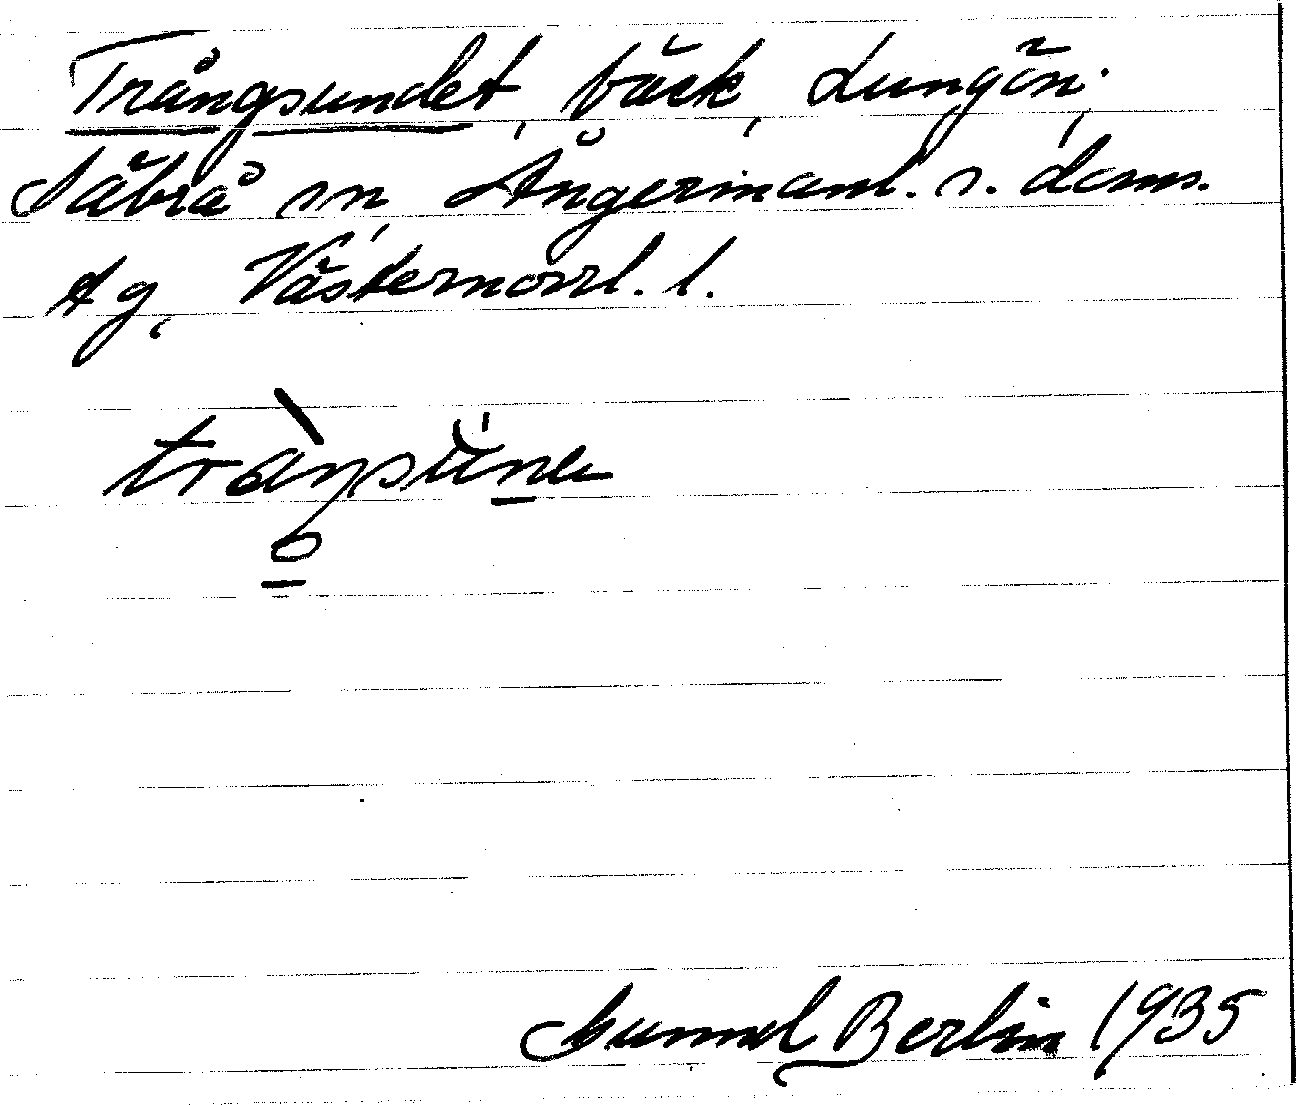 Trångsundet, bäck, Lungön,
Säbrå sn, Ångermanl. s. doms.
Ag, Västernorrl. l.
Gunnel Berlin 1935